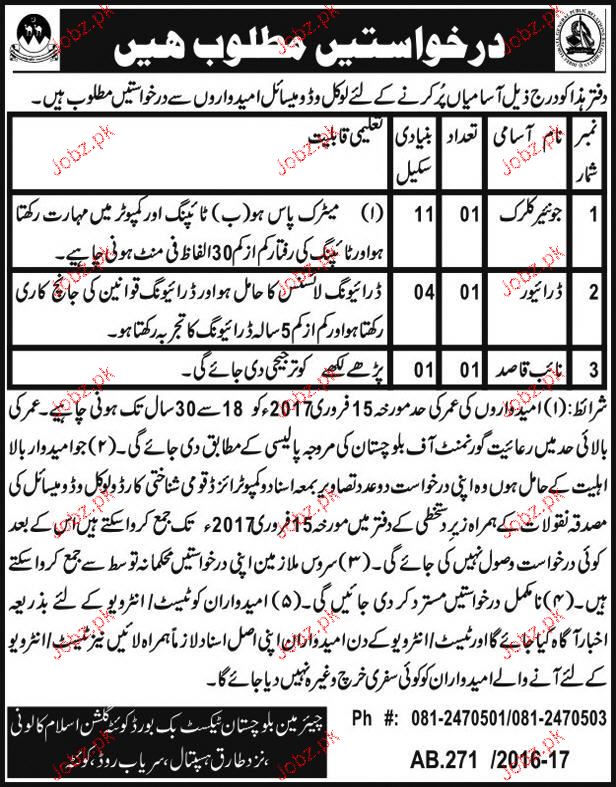 درخواستیں مطلوب ھیں
دفتر ہذا کو درج ذیل آسامیاں پُر کرنے کے لئے لوکل و ڈومیسائل امیدواروں سے درخواستیں مطلوب ہیں۔
نمبر شمار	نام آسامی	تعداد	بنیادی سکیل	تعلیمی قابلیت
1	جونیئر کلرک	01	11	(۱) میٹرک پاس ہو (ب) ٹائپنگ اور کمپوٹر میں مہارت رکھتا
ہو اور ٹائپنگ کی رفتار کم از کم 30 الفاظ فی منٹ ہونی چاہیے۔
2	ڈرائیور	01	04	ڈرائیونگ لائسنس کا حامل ہو اور ڈرائیونگ قوانین کی جانچ کاری
رکھتا ہو اور کم از کم 5 سالہ ڈرائیونگ کا تجربہ رکھتا ہو۔
3	نائب قاصد	01	01	پڑھے لکھے کو ترجیحی دی جائے گی۔
شرائط: (۱) امیدواروں کی عمر کی حد مورخہ 15 فروری 2017ء کو 18 سے 30 سال تک ہونی چاہیے۔ عمر کی
بالائی حد میں رعائیت گورنمنٹ آف بلوچستان کی مروجہ پالیسی کے مطابق دی جائے گی۔ (۲) جو امیدوار بالا
اہلیت کے حامل ہوں وہ اپنی درخواست دو عدد تصاویر بمعہ اسناد و کمپوٹرائزڈ قومی شناختی کارڈ و لوکل و ڈومیسائل کی
مصدقہ نقولات کے ہمراہ زیر دستخطی کے دفتر میں مورخہ 15 فروری 2017ء تک جمع کروا سکتے ہیں اس کے بعد
کوئی درخواست وصول نہیں کی جائے گی۔ (۳) سروس ملازمین اپنی درخواستیں محکمانہ توسط سے جمع کروا سکتے
ہیں۔ (۴) نامکمل درخواستیں مسترد کر دی جائیں گی۔ (۵) امیدواران کو ٹیسٹ/انٹرویو کے لئے بذریعہ
اخبار آگاہ کیا جائے گا اور ٹیسٹ/انٹرویو کے دن امیدواران اپنی اصل اسناد لازماً ہمراہ لائیں نیز ٹیسٹ/انٹرویو
کے لئے آنے والے امیدواران کو کوئی سفری خرچ وغیرہ نہیں دیا جائے گا۔
چیئرمین بلوچستان ٹیکسٹ بک بورڈ کوئٹہ گلشن اسلام کالونی
نزد طارق ہسپتال، سریاب روڈ، کوئٹہ
Ph #: 081-2470501/081-2470503
AB.271 /2016-17
Jobz.pk